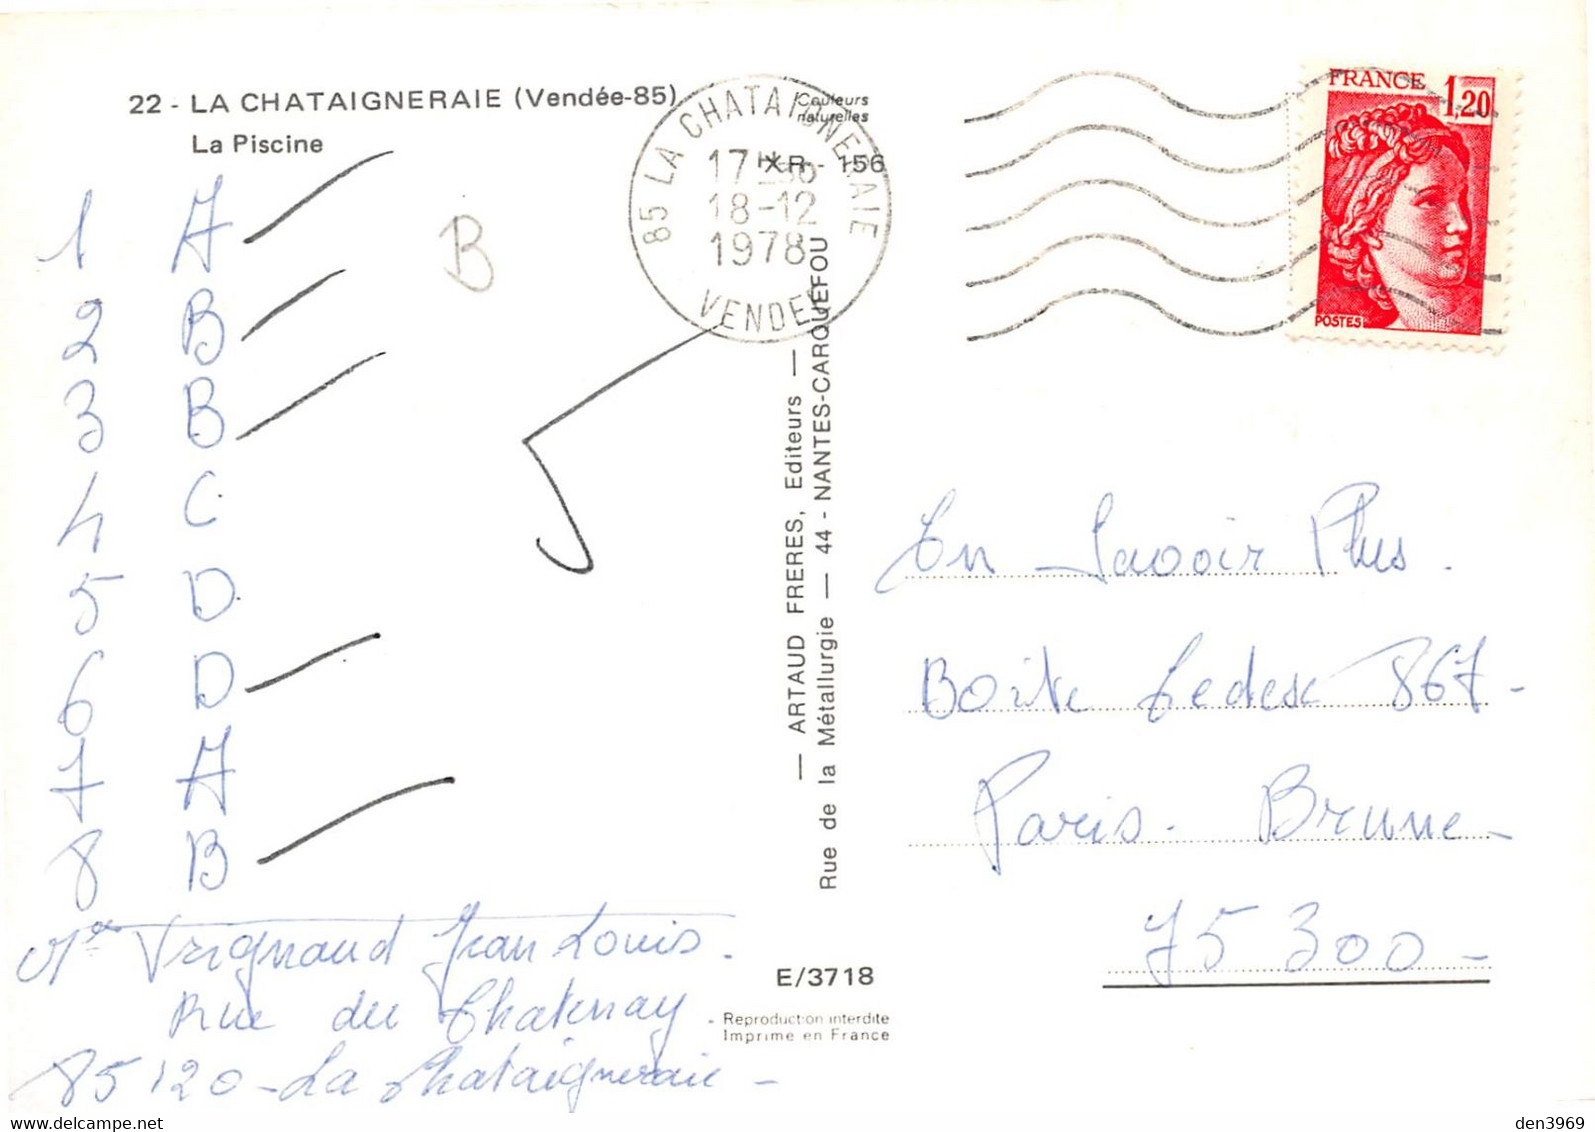 22 - LA CHATAIGNERAIE (Vendée-85)
La Piscine
Couleurs
naturelles
85 LA CHATAIGNERAIE
18-12
1978
VENDEE
FRANCE
1,20
POSTES
1 A
2 B
3 B
4 C
5 D
6 D
7 A
8 B
B
5
— ARTAUD FRERES, Editeurs —
Rue de la Métallurgie — 44 - NANTES-CARQUEFOU
En Savoir Plus.
Boite Cedex 867-
Paris. Brune-
75 300-
Trignaud Jean Louis.
Rue du Chatenay
85120-La Chataigneraie-
E/3718
- Reproduction interdite
Imprime en France
den3969